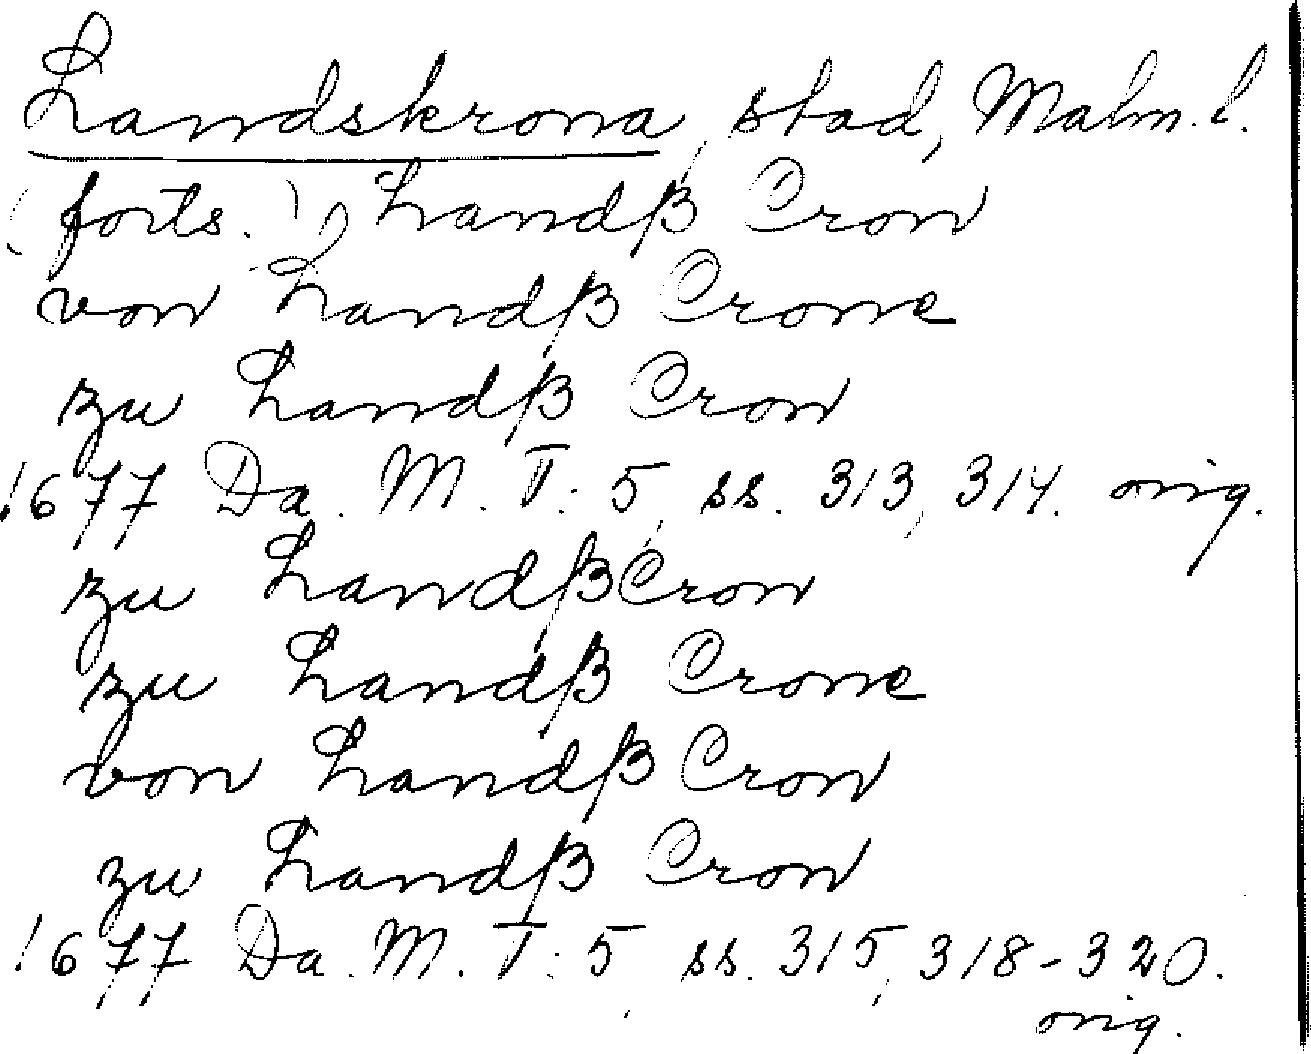 Landskrona, stad, Malm. l.
(forts.), Landß Cron
von Landß Crone
zu Landß Cron
1677 Da. M. T. 5, ss. 313, 314. orig.
zu LandßCron
zu Landß Crone
von Landß Cron
zu Landß Cron
1677 Da. M. T. 5, ss. 315, 318-320.
orig.